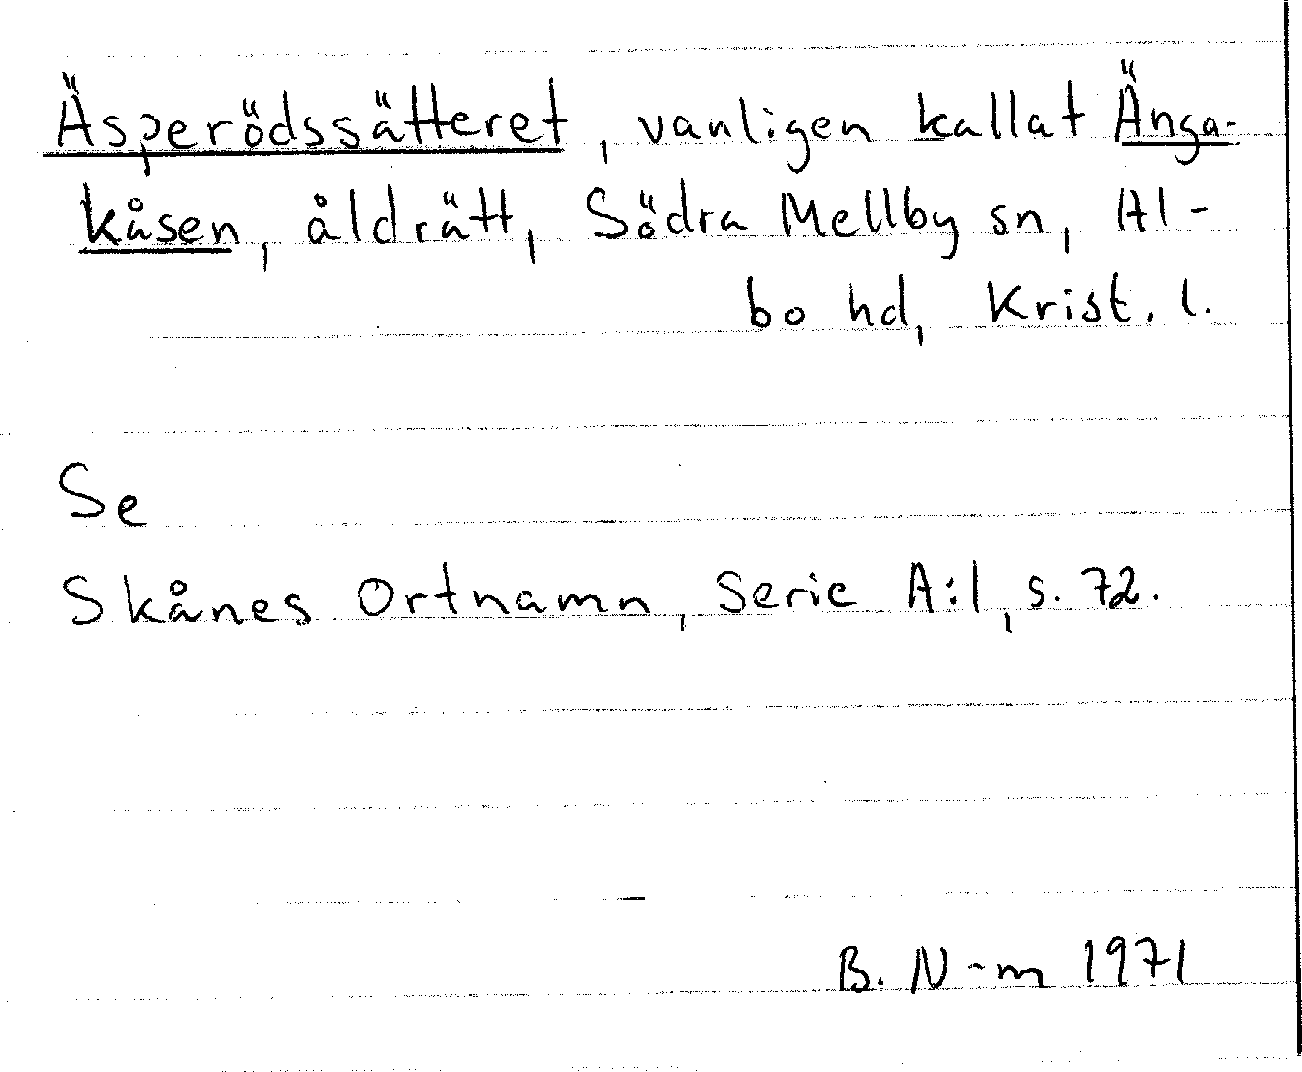 Äsperödssätteret, vanligen kallat Änga-
kåsen, åldrätt, Södra Mellby sn, Al-
bo hd, Krist. l.
Se
Skånes Ortnamn, Serie A:1, s. 72.
B. N-m 1971